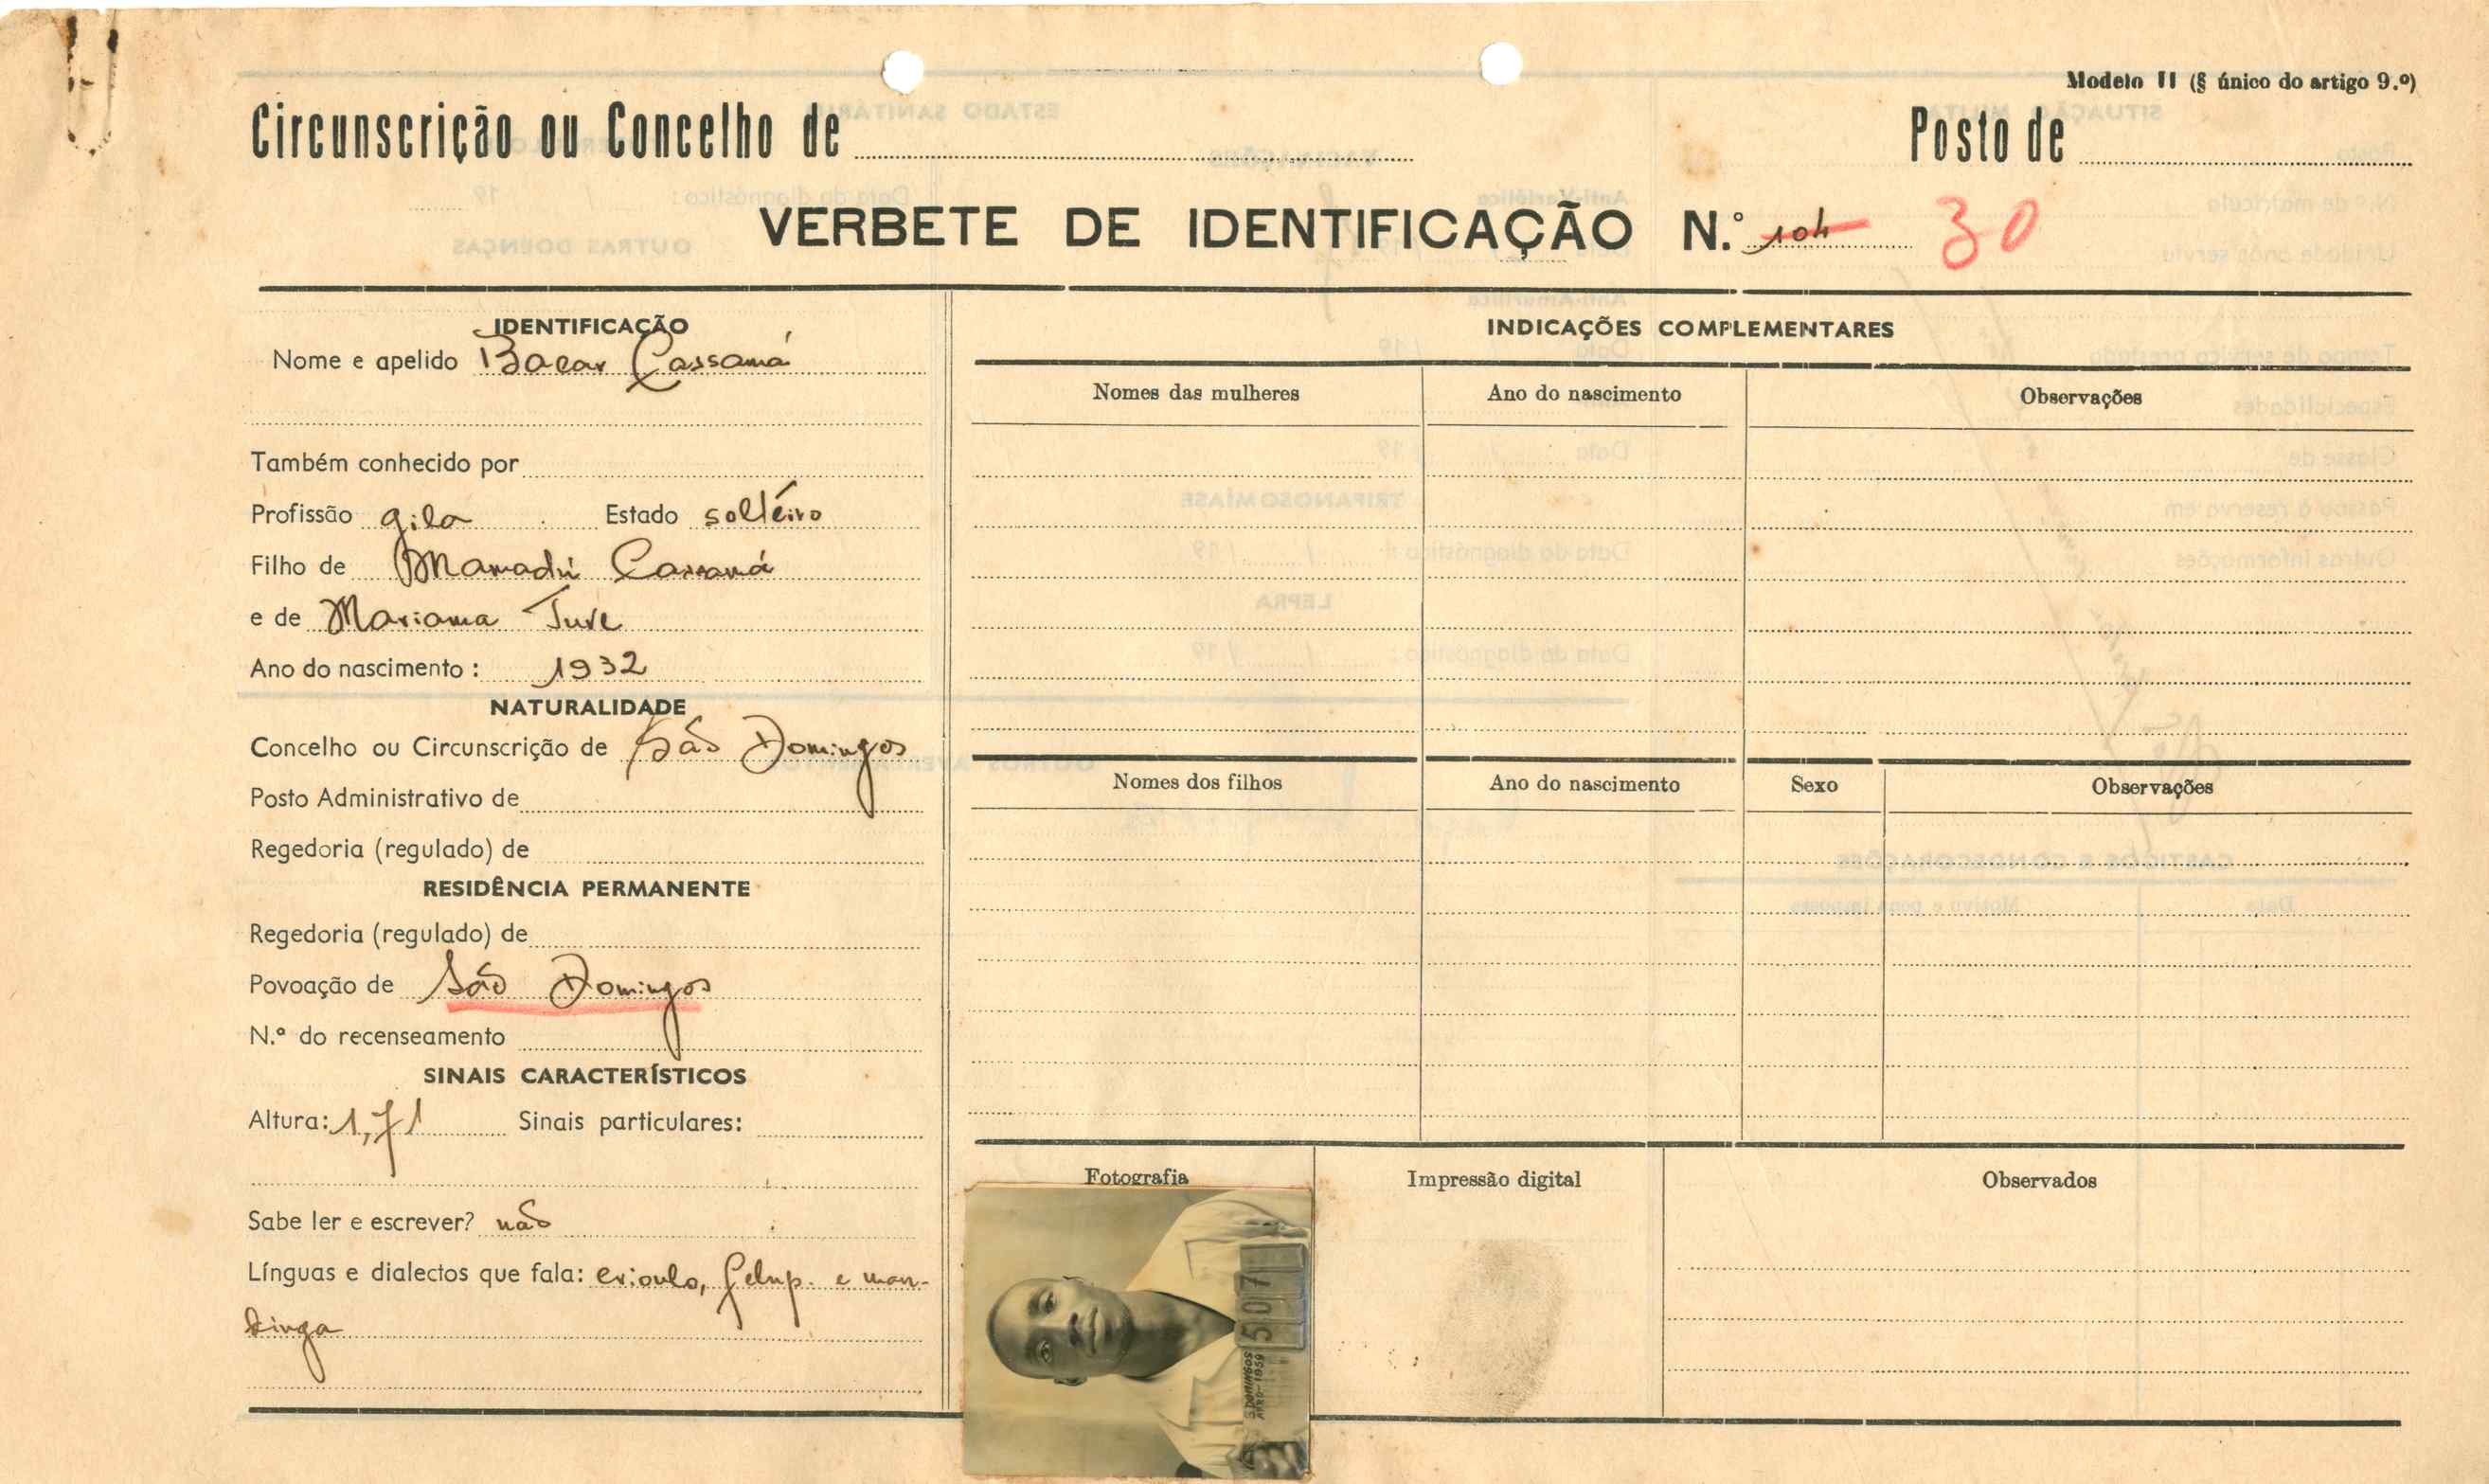 Modelo II (§ único do artigo 9.º)
Circunscrição ou Concelho de
Posto de
VERBETE DE IDENTIFICAÇÃO N.º 104 30
IDENTIFICAÇÃO
Nome e apelido Bacar Cassamá
Também conhecido por
Profissão gila Estado solteiro
Filho de Mamadú Cassamá
e de Mariama Ture
Ano do nascimento : 1932
NATURALIDADE
Concelho ou Circunscrição de São Domingos
Posto Administrativo de
Regedoria (regulado) de
RESIDÊNCIA PERMANENTE
Regedoria (regulado) de
Povoação de São Domingos
N.º do recenseamento
SINAIS CARACTERÍSTICOS
Altura: 1,71 Sinais particulares:
Sabe ler e escrever? não
Línguas e dialectos que fala: crioulo, felup. e man-
dinga
INDICAÇÕES COMPLEMENTARES
Nomes das mulheres Ano do nascimento Observações
Nomes dos filhos Ano do nascimento Sexo Observações
Fotografia Impressão digital Observados
507
S. DOMINGOS
ANO-1959